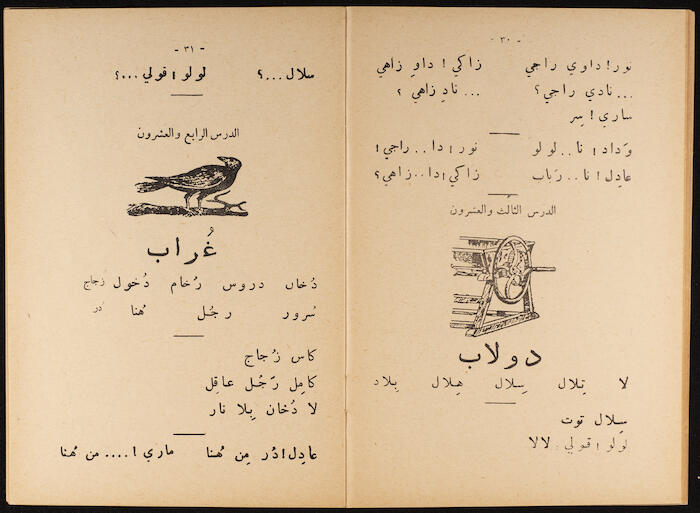 - ٣٠ -
نور ! داوي راجي زاكي ! داوِ زاهي
... نادي راجي ؟ ... نادِ زاهي ؟
ساري ! سِر
وَداد ! نا .. لولو نور ! دا .. راجي !
عادِل ! نا .. رَباب زاكي ! دا .. زاهي ؟
الدرس الثالث والعشرون
دولاب
لا تِلال سِلال هِلال بِلاد
سِلال توت
لولو ! قولي : لالا
- ٣١ -
سلال ... ؟ لولو ! قولي ... ؟
الدرس الرابع والعشرون
غُراب
دُخان دروس رُخام دُخول زجاج
سُرور رجُل هُنا دُر
كاس زُجاج
كامِل رَجُل عاقِل
لا دُخان بِلا نار
عادِل ! دُر مِن هُنا ماري ! .... من هُنا